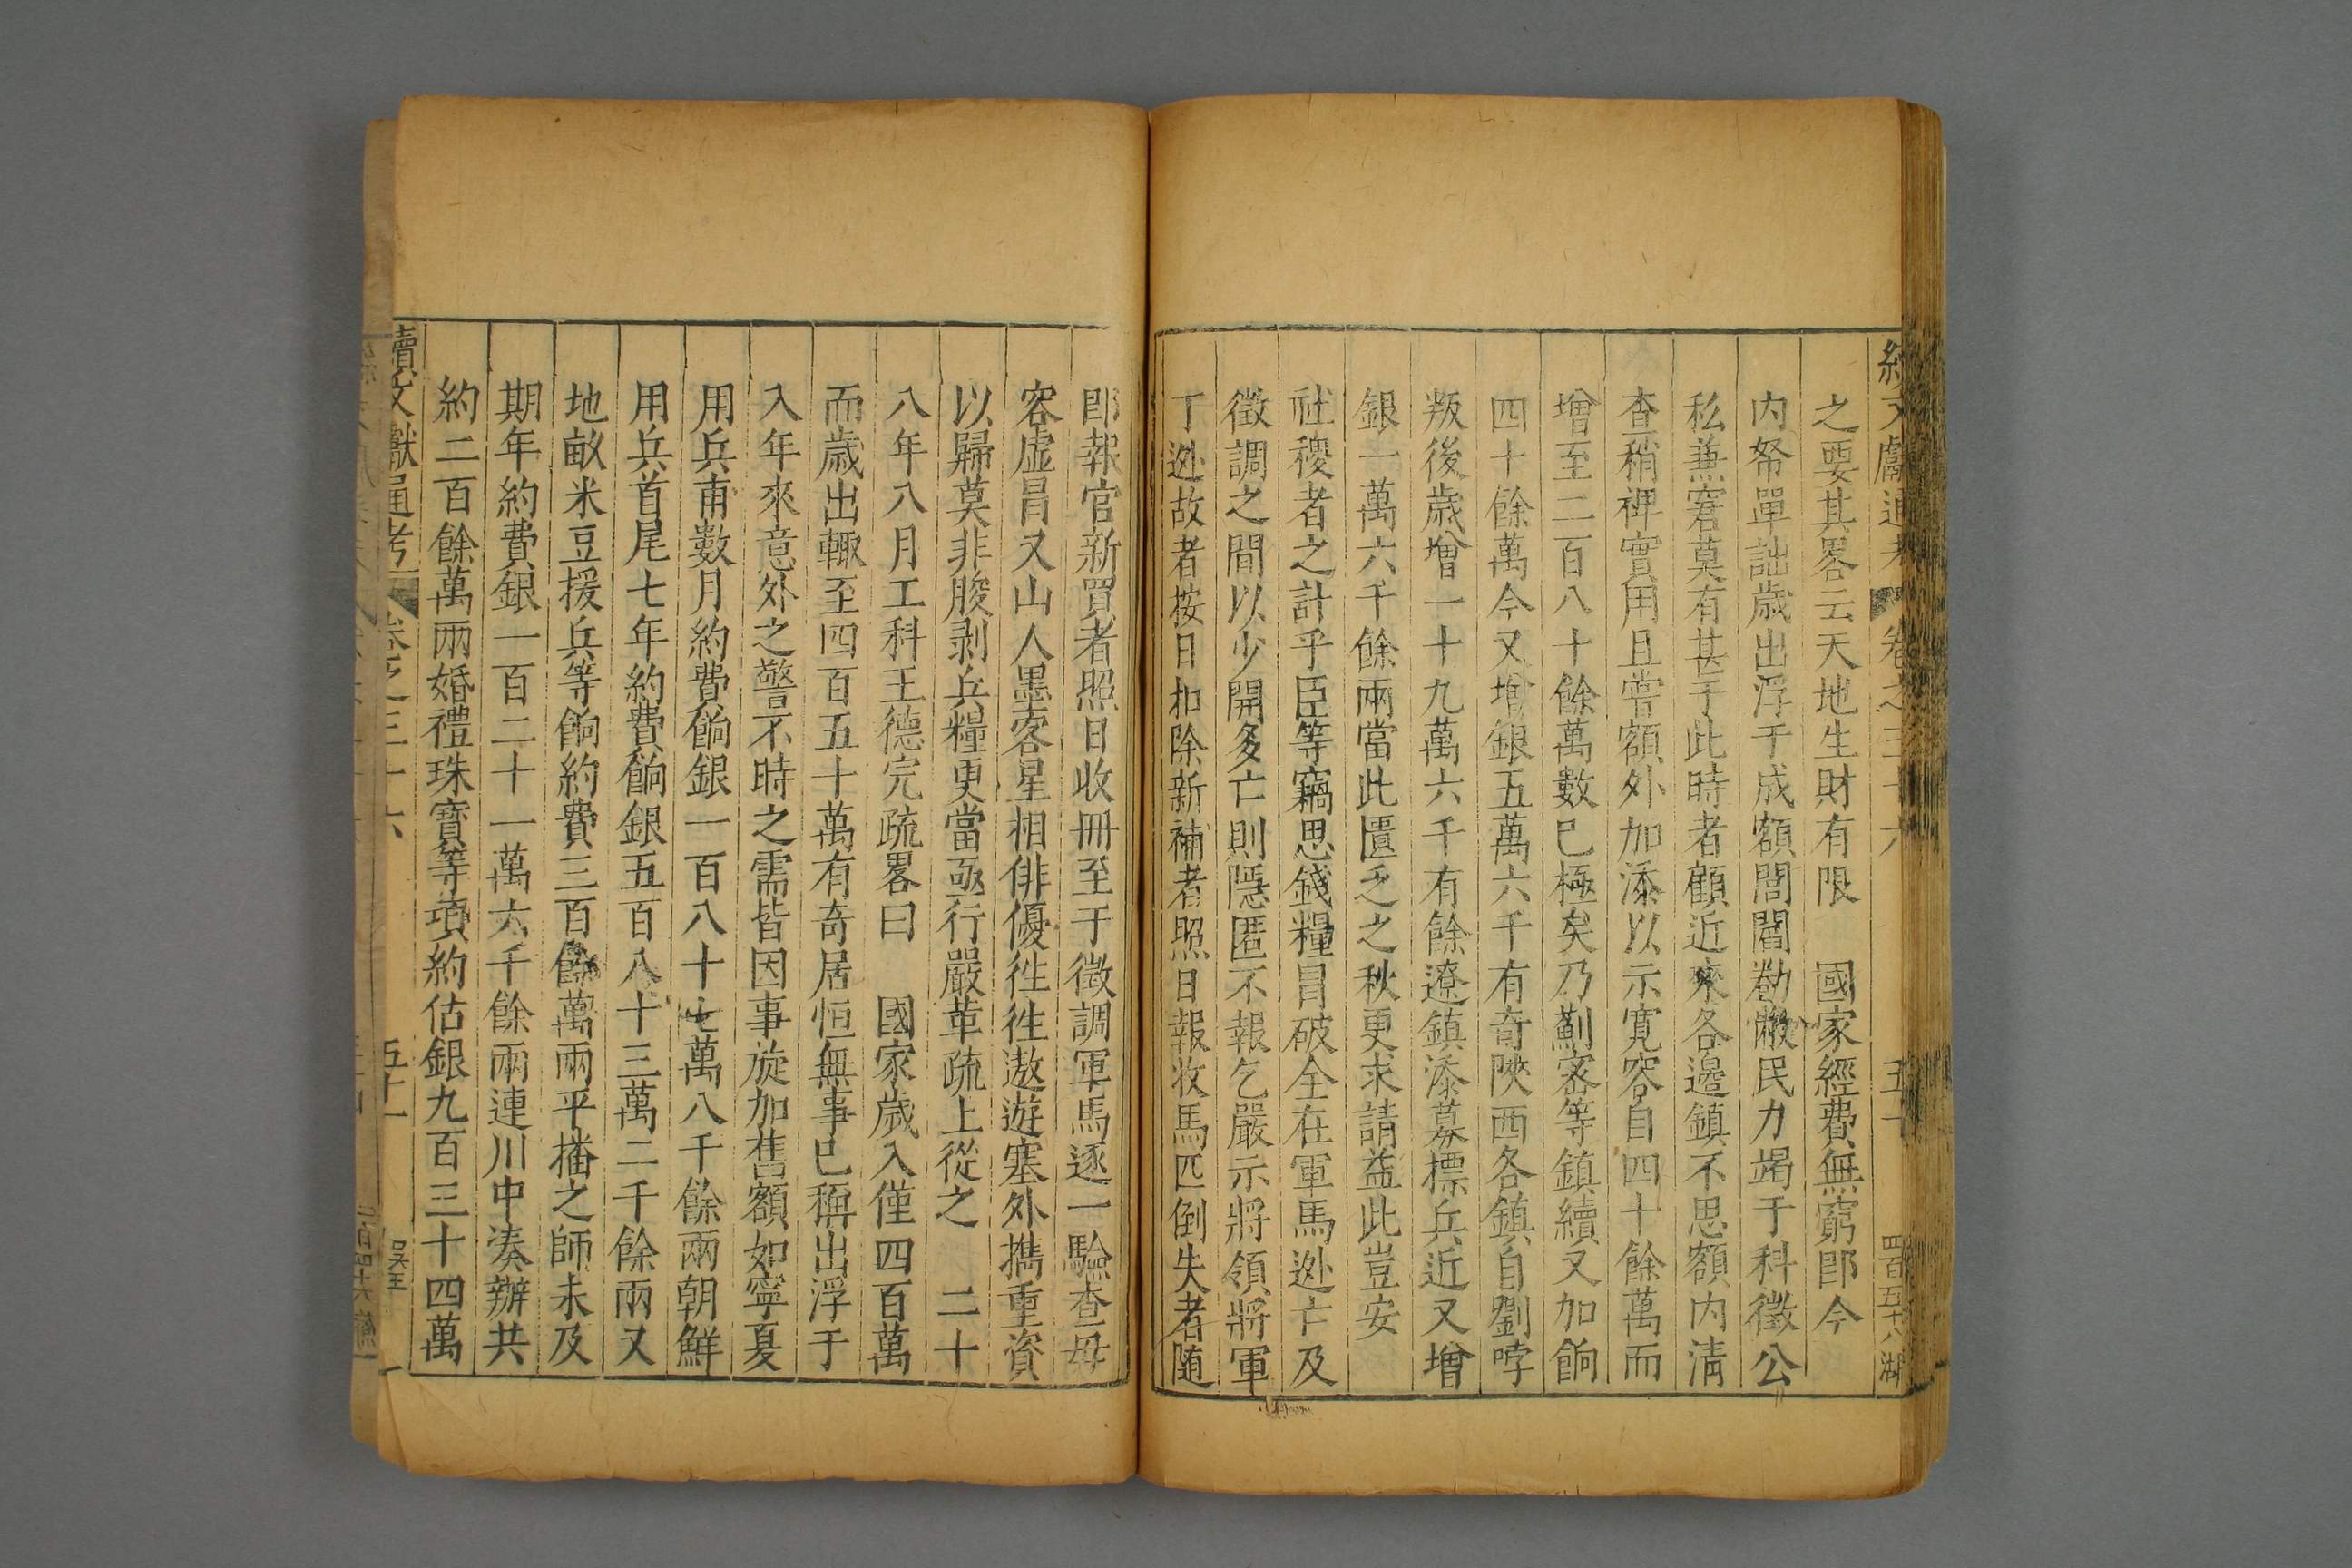 續文獻通考 卷之三十六 五十 四百五十八 湖
之要其畧云天地生財有限 國家經費無窮卽今
内帑單詘歲出浮于成額閭閻勌敝民力竭于科徵公
私兼窘莫有甚于此時者顧近來各邊鎮不思額内淸
查稍裨實用且嘗額外加添以示寛容自四十餘萬而
增至二百八十餘萬數已極矣乃薊密等鎮續又加餉
四十餘萬今又增銀五萬六千有奇陝西各鎮自劉哱
叛後歲增一十九萬六千有餘遼鎮添募標兵近又增
銀一萬六千餘兩當此匱乏之秋更求請益此豈安
社稷者之計乎臣等竊思錢糧冒破全在軍馬迯亡及
徵調之間以少開多亡則隱匿不報乞嚴示將領將軍
丁迯故者按日扣除新補者照日報收馬匹倒失者随
卽報官新買者照日收冊至于徵調軍馬逐一驗查毋
容虚昌又山人墨客星相俳優徃徃遨遊塞外擕重資
以歸莫非朘剥兵糧更當亟行嚴革疏上從之 二十
八年八月工科王德完疏畧曰 國家歲入僅四百萬
而歲出輒至四百五十萬有奇居恒無事已稱出浮于
入年來意外之警不時之需皆因事旋加舊額如寧夏
用兵甫數月約費餉銀一百八十七萬八千餘兩朝鮮
用兵首尾七年約費餉銀五百八十三萬二千餘兩又
地畝米豆援兵等餉約費三百餘萬兩平播之師未及
期年約費銀一百二十一萬六千餘兩連川中湊辦共
約二百餘萬兩婚禮珠寶等項約估銀九百三十四萬
續文獻通考 卷之三十六 五十一